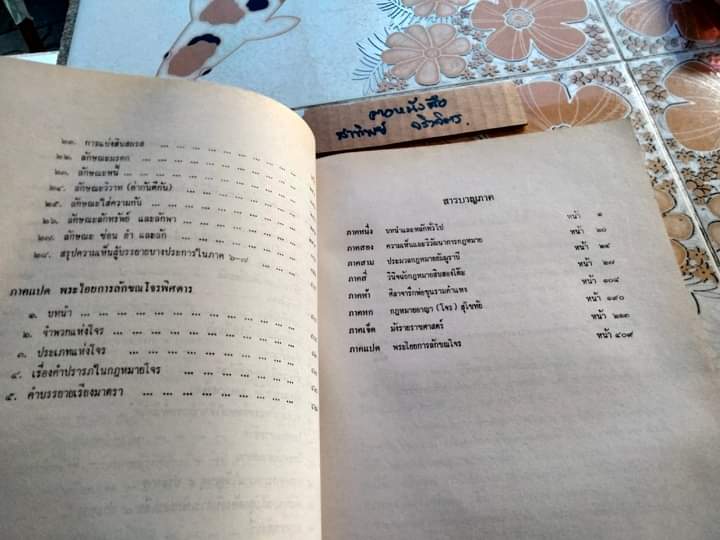 ตอหนังสือ
สาทิพย์
๒๑. การแบ่งสินสมรส ... ... ... ... ...
๒๒. ลักษณะมรดก ... ... ... ... ...
๒๓. ลักษณะหนี้ ... ... ... ... ...
๒๔. ลักษณะวิวาท (ด่ากันตีกัน) ... ... ... ...
๒๕. ลักษณะใส่ความกัน ... ... ... ... ...
๒๖. ลักษณะลักทรัพย์ และลักพา ... ... ... ...
๒๗. ลักษณะ ซ่อน อำ และลัก ... ... ... ...
๒๘. สรุปความเห็นผู้บรรยายบางประการในภาค ๒-๗ ... ...
ภาคแปด พระไอยการลักขณโจรพิศดาร
๑. บทนำ ... ... ... ... ... ... ...
๒. จำพวกแห่งโจร ... ... ... ... ... ...
๓. ประเภทแห่งโจร ... ... ... ... ... ...
๔. เรื่องคำปรารภในกฎหมายโจร ... ... ... ... ...
๕. คำบรรยายเรียงมาตรา ... ... ... ... ... ...
สารบาญภาค
ภาคหนึ่ง บทนำและหลักทั่วไป หน้า ๑
ภาคสอง ความเห็นและวิวัฒนาการกฎหมาย หน้า ๒๐
ภาคสาม ประมวลกฎหมายฮัมมูราบี หน้า ๒๔
ภาคสี่ วินิจฉัยกฎหมายสิบสองโต๊ะ หน้า ๒๗
ภาคห้า ศิลาจารึกพ่อขุนรามคำแหง หน้า ๑๐๔
ภาคหก กฎหมายอาญา (โจร) สุโขทัย หน้า ๑๙๐
ภาคเจ็ด มังรายราชศาสตร์ หน้า ๒๑๓
ภาคแปด พระไอยการลักขณโจร หน้า ๔๐๙